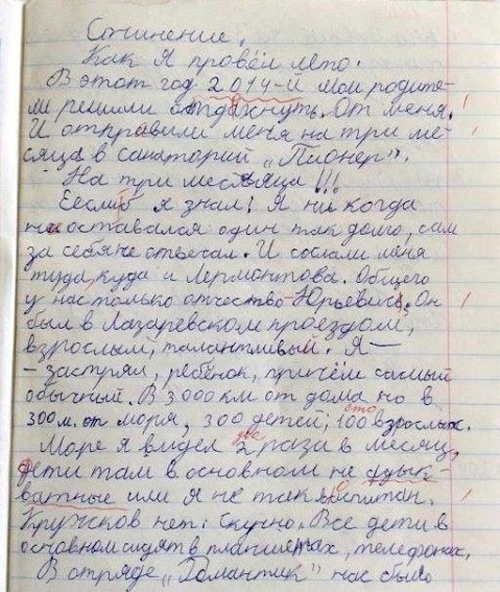 Сочинение.
Как я провёл лето.
В этот год 2014-й мои родите-
ли решили отдахнуть. От меня.
И отправили меня на три ме-
сяца в санаторий „Пионер".
На три месяца!!!
Еесли б я знал! Я ни когда
не оставался один так долго, сам
за себя не отвечал. И сослали меня
туда, куда и Лермонтова. Общего
у нас только отчество-Юрьевич. Он
был в Лазаревском проездом,
взрослый, талантливый. Я —
- застрял, ребёнок, причём самый
обычный. В 3000 км от дома но в
300 м. от моря, 300 детей; 100 взрослых.
сто
Море я видел 2 раза в месяц,
два
дети там в основном не адык-
ватные или я не так воспитан.
Кружков нет. Скучно. Все дети в
основном сидят в планшетах, телефонах.
В отряде „Романтик" нас было